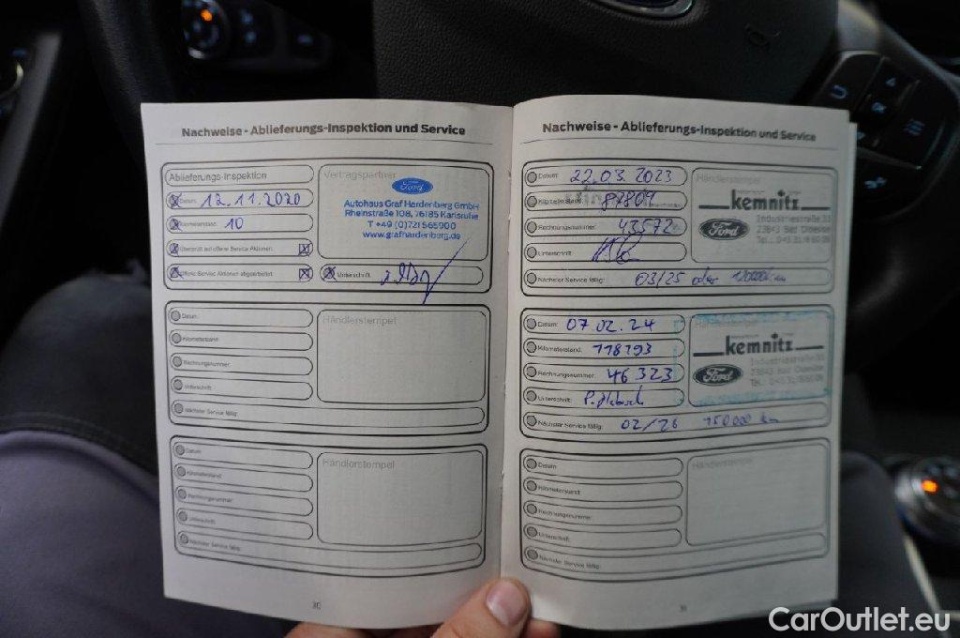 Nachweise - Ablieferungs-Inspektion und Service
Ablieferungs-Inspektion
Datum: 12.11.2020
Kilometerstand: 10
Offene Service Aktionen abgearbeitet
Unterschrift:
Vertragspartner
Ford
Autohaus Graf Hardenberg GmbH
Rheinstraße 108, 76185 Karlsruhe
T +49 (0)721 565900
www.grafhardenberg.de
Datum:
Kilometerstand:
Rechnungsnummer:
Unterschrift:
Nächster Service fällig:
Händlerstempel
Datum:
Kilometerstand:
Rechnungsnummer:
Unterschrift:
Nächster Service fällig:
Händlerstempel
30
Nachweise - Ablieferungs-Inspektion und Service
Datum: 22.03.2023
Kilometerstand: 87809
Rechnungsnummer: 43572
Unterschrift:
Nächster Service fällig: 03/25 oder 120000 km
Händlerstempel
kemnitz
Ford
Industriestraße 33
Datum: 07.02.24
Kilometerstand: 118793
Rechnungsnummer: 46323
Unterschrift:
Nächster Service fällig: 02/26 150000 km
kemnitz
Ford
Industriestraße 33
Datum:
Kilometerstand:
Rechnungsnummer:
Unterschrift:
Nächster Service fällig:
Händlerstempel
31
CarOutlet.eu